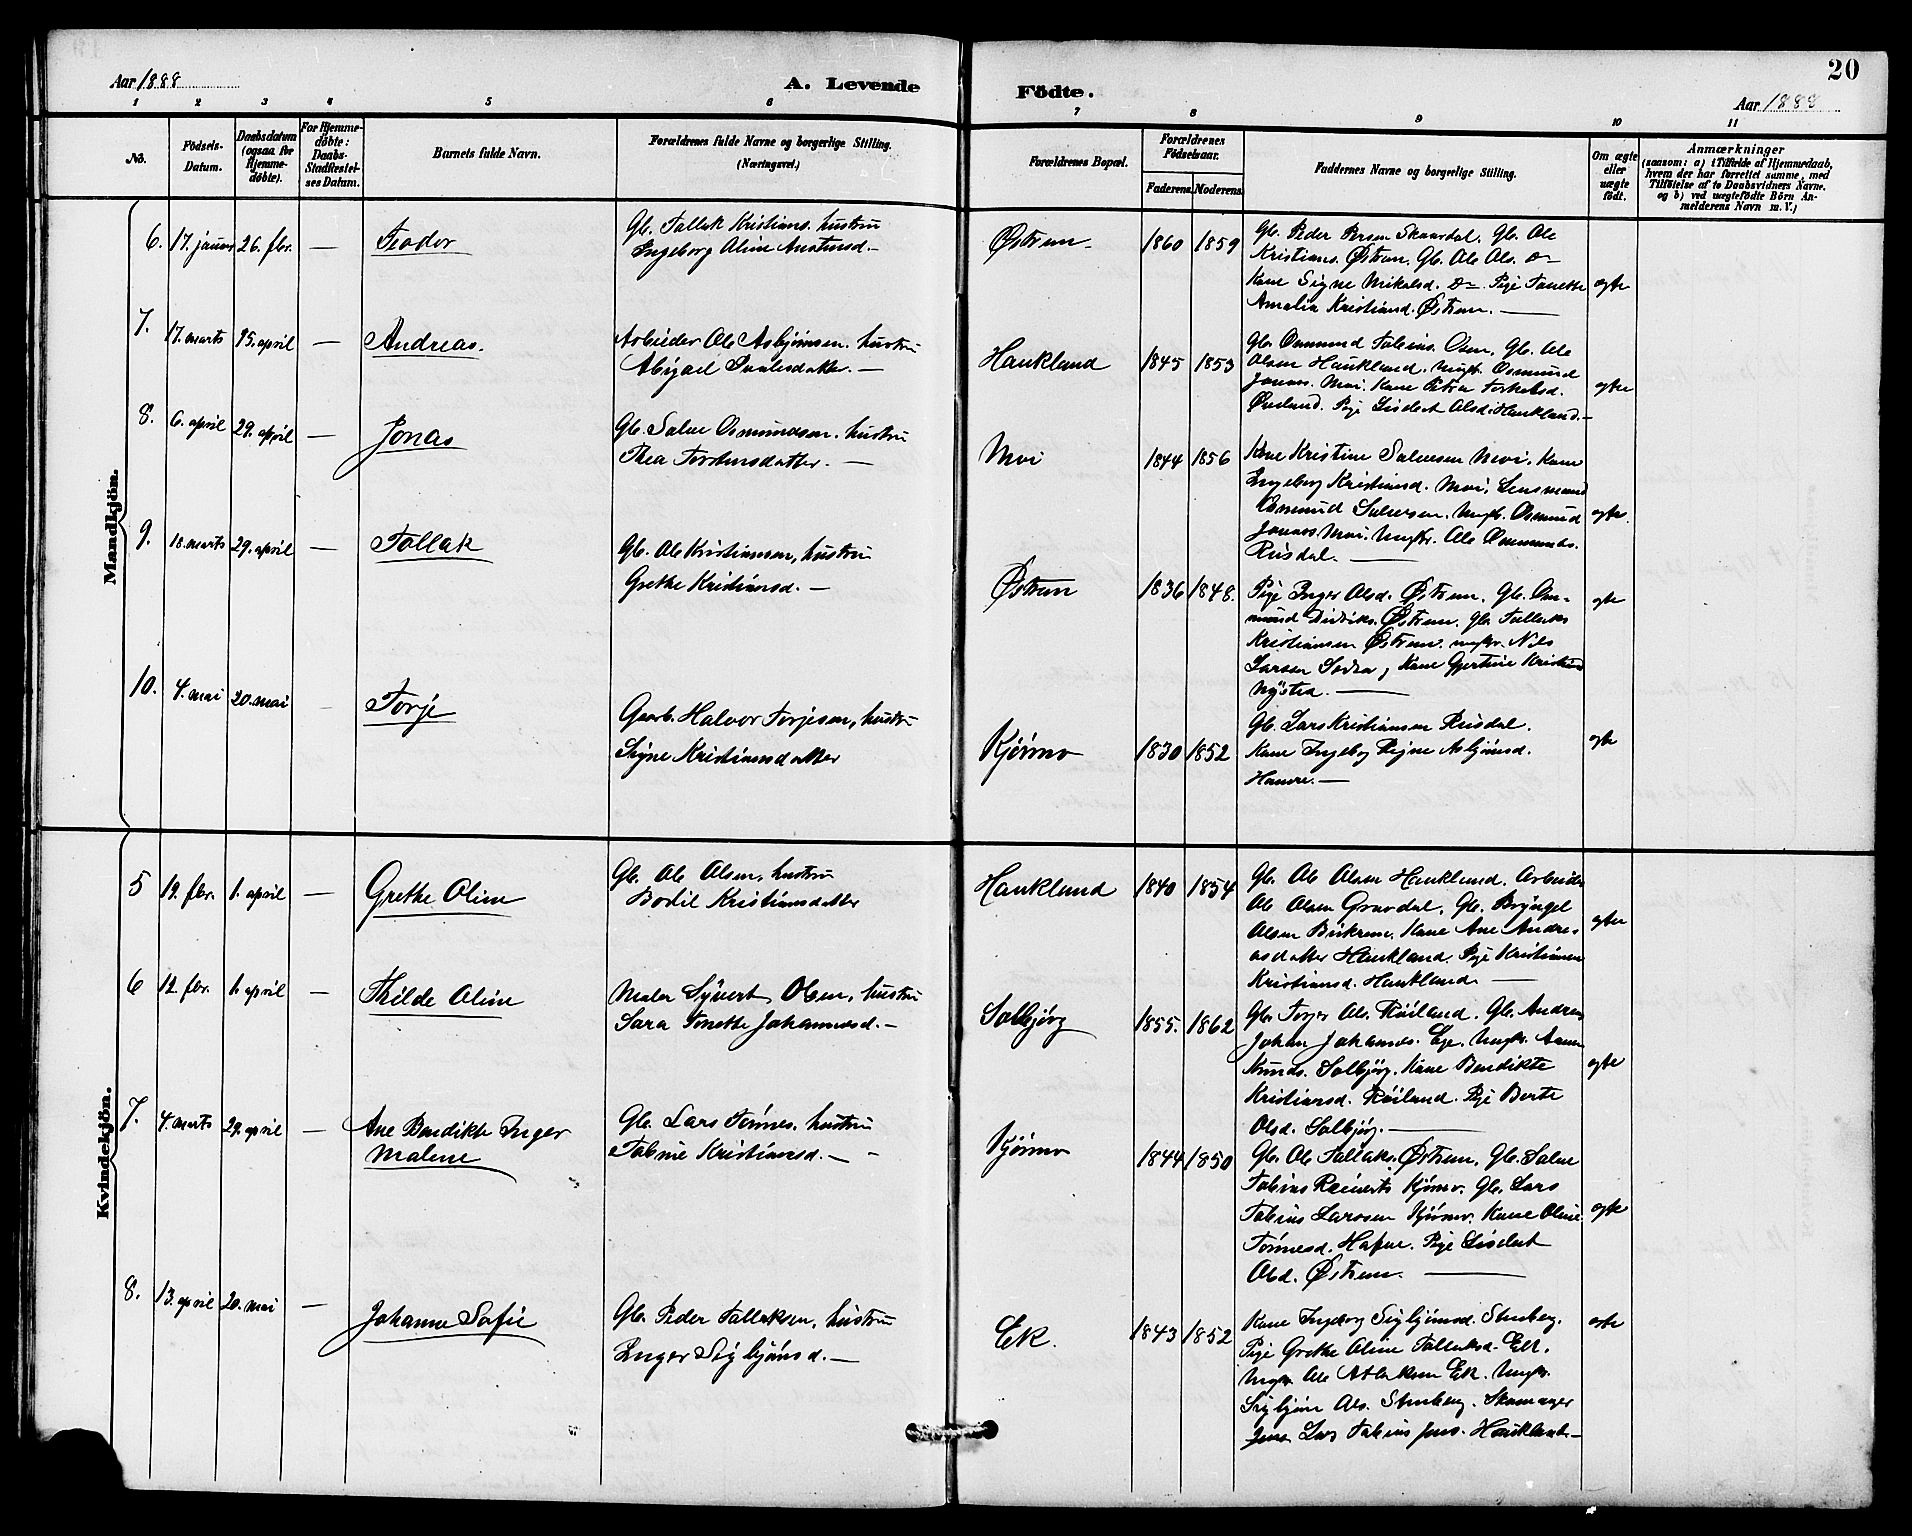 Aar 1888
A. Levende
Födte.
20
Aar 1888
1 2 3 4 5 6 7 8 9 10 11
No.
Födsels-Datum.
Daabsdatum (ogsaa for Hjemme-döbte).
For Hjemme-döbte: Daabs-Stadfæstel-ses Datum.
Barnets fulde Navn.
Forældrenes fulde Navne og borgerlige Stilling.
(Næringsvei.)
Forældrenes Bopæl.
Forældrenes Födselsaar.
Faderens. Moderens.
Faddernes Navne og borgerlige Stilling.
Om ægte eller uægte födt.
Anmærkninger
(saasom: a) i Tilfælde af Hjemmedaab,
hvem der har forrettet samme, med
Tilföielse af to Daabsvidners Navne,
og b) ved uægtefödte Börn An-
melderens Navn m. V.)
Mandkjön.
6. 17. januar 26. fbr. — Teodor
Gb. Tallak Kristians. hustru
Ingeborg Aline Anstensd. —
Østrem 1860 1859
Gb. Peder Persen Skaardal. Gb. Ole
Kristians. Østrem. Gb. Ole Ols. Do
Kone Signe Mikalsd. Do. Pige Tonette
Amalia Kristiansd. Østrem. —
egte
7. 17. marts 15. april — Andreas.
Arbeider Ole Asbjörnsen. hustru
Abigael Paalsdatter. —
Haukland 1845 1853
Gb. Osmund Tobias. Osen, Gb. Ole
Olsen Haukland. Ungk. Osmund
Jonas. Moi. Kone Petra Torkelsd.
Øveland. Pige Liselet Olsd. Haukland. —
egte
8. 6. april 29. april — Jonas
Gb. Salve Osmundsen. hustru
Thea Torstensdatter. —
Moi 1844 1856
Kone Kristine Salvesen Moi. Kone
Ingeborg Kristiansd. Moi, Lensmand
Osmund Salvesen. Ungk. Osmund
Jonas Moi. Ungk. Ole Osmunds.
Risdal. —
egte.
9. 18. marts 29. april — Tallak
Gb. Ole Kristiansen, hustru
Grethe Kristiansd. —
Østrem 1836 1848.
Pige Inger Olsd. Østrem. Gb. Os-
mund Didriks. Østrem. Gb. Tallak
Kristiansen Østrem. ungkr. Nils
Larsen, Kone Gjertine Kristiansd
Nysted. —
egte
10. 4. mai 20. mai Torje
Gaarb. Halvor Torjesen, hustru
Signe Kristiansdatter
Kjörmo 1830 1852
Gb. Lars Kristiansen Risdal.
Kone Ingeborg Asbjörnsd.
—
egte
Kvindekjön.
5 19. fbr. 1. april — Grethe Oline
Gb. Ole Olsen, hustru
Bodil Kristiansdatter
Haukland 1840 1854
Gb. Ole Olsen Haukland. Arbeider
Ole Olsen Gravdal, Gb. Bryngel
Olsen Birkrem. Kone Ane Andre-
asdatter Haukland. Pige Kristiane
Kristiansd. Haukland —
egte
6 12. fbr. 1. april — Thilde Oline
Maler Syvert Olsen, hustru
Sara Tonette Johannesd. —
Solbjørg 1855. 1862
Gb. Torger Ols. Röiland. Gb. Andreas
Johan Johannes. Ege. Ungkr.
Knuds. Solbjørg. Kone Bendikte
Kristiansd. Röiland. Pige Berte
Olsd. Solbjørg. —
egte
7. 4. marts 29. april — Ane Bendikte Inger
Malene
Gb. Lars Tönnes. hustru
Tabine Kristiansd. —
Kjörmo 1844 1850
Gb. Ole Tallaks. Østrem, Gb. Salve
Tobias Reinerts Kjörmo. Gb. Lars
Tobias Larssen Kjörmo. Kone Oline
Tönnesd. Hafsøe. Pige Liselet
Olsd. Østrem. —
egte
8. 13. april 20. mai — Johanne Sofie
Gb. Peder Tallaksen, hustru
Inger Sigbjörnsd. —
Ek. 1843 1852
Kone Ingeborg Sigbjörnsd. Stenberg.
Pige Grethe Oline Tallaksd. Ek.
Ungkr. Ole Atlaksen Ek. Ungkr.
Sigbjörn Ols. Stenberg. Skomager
Jens Lars Tobias Jens. Haukland. —
egte